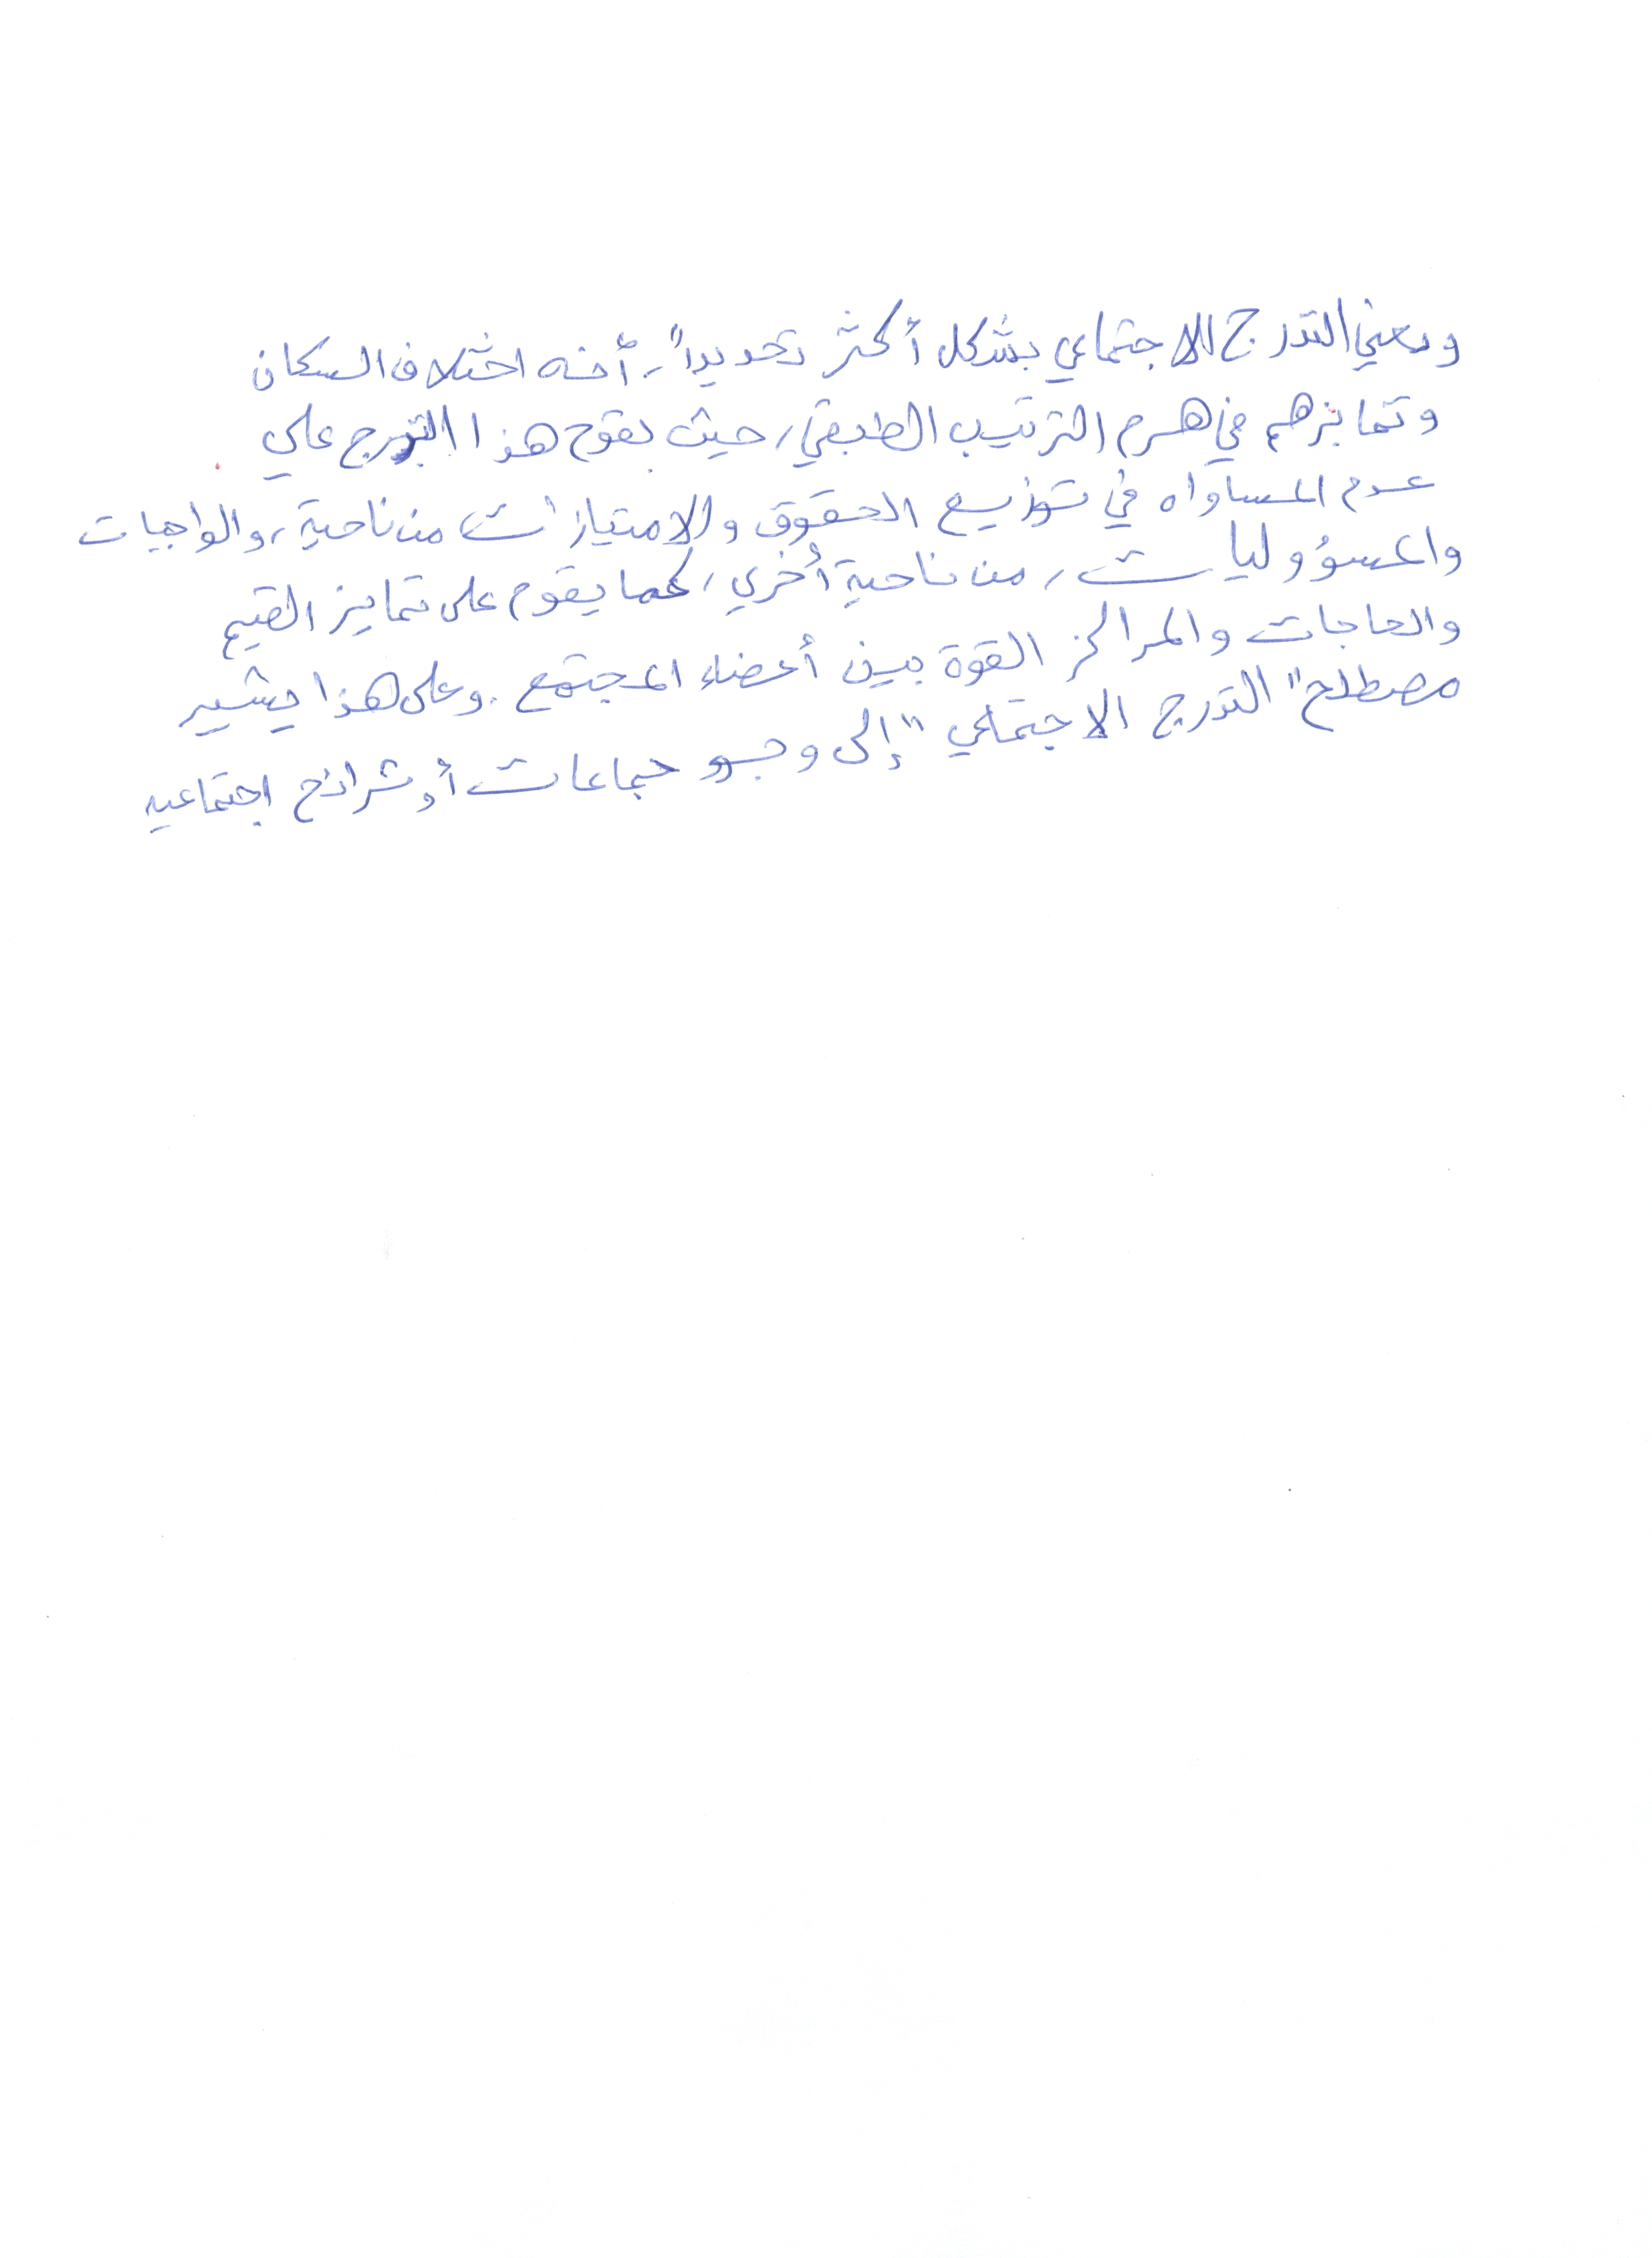 ويعني التدرج الاجتماعي بشكل أكثر تحديداً، أنه اختلاف السكان
وتمايزهم في هرم الترتيب الطبقي، حيث يقوم هذا التدرج علي
عدم المساواه في توزيع الحقوق والامتيازات من ناحية، والواجبات
والمسؤوليات، من ناحية أخري، كما يقوم على تمايز القيم
والحاجات والمراكز القوة بين أعضاء المجتمع. وعلى هذا يشير
مصطلح "التدرج الاجتماعي" إلى وجود جماعات أو شرائح اجتماعيه